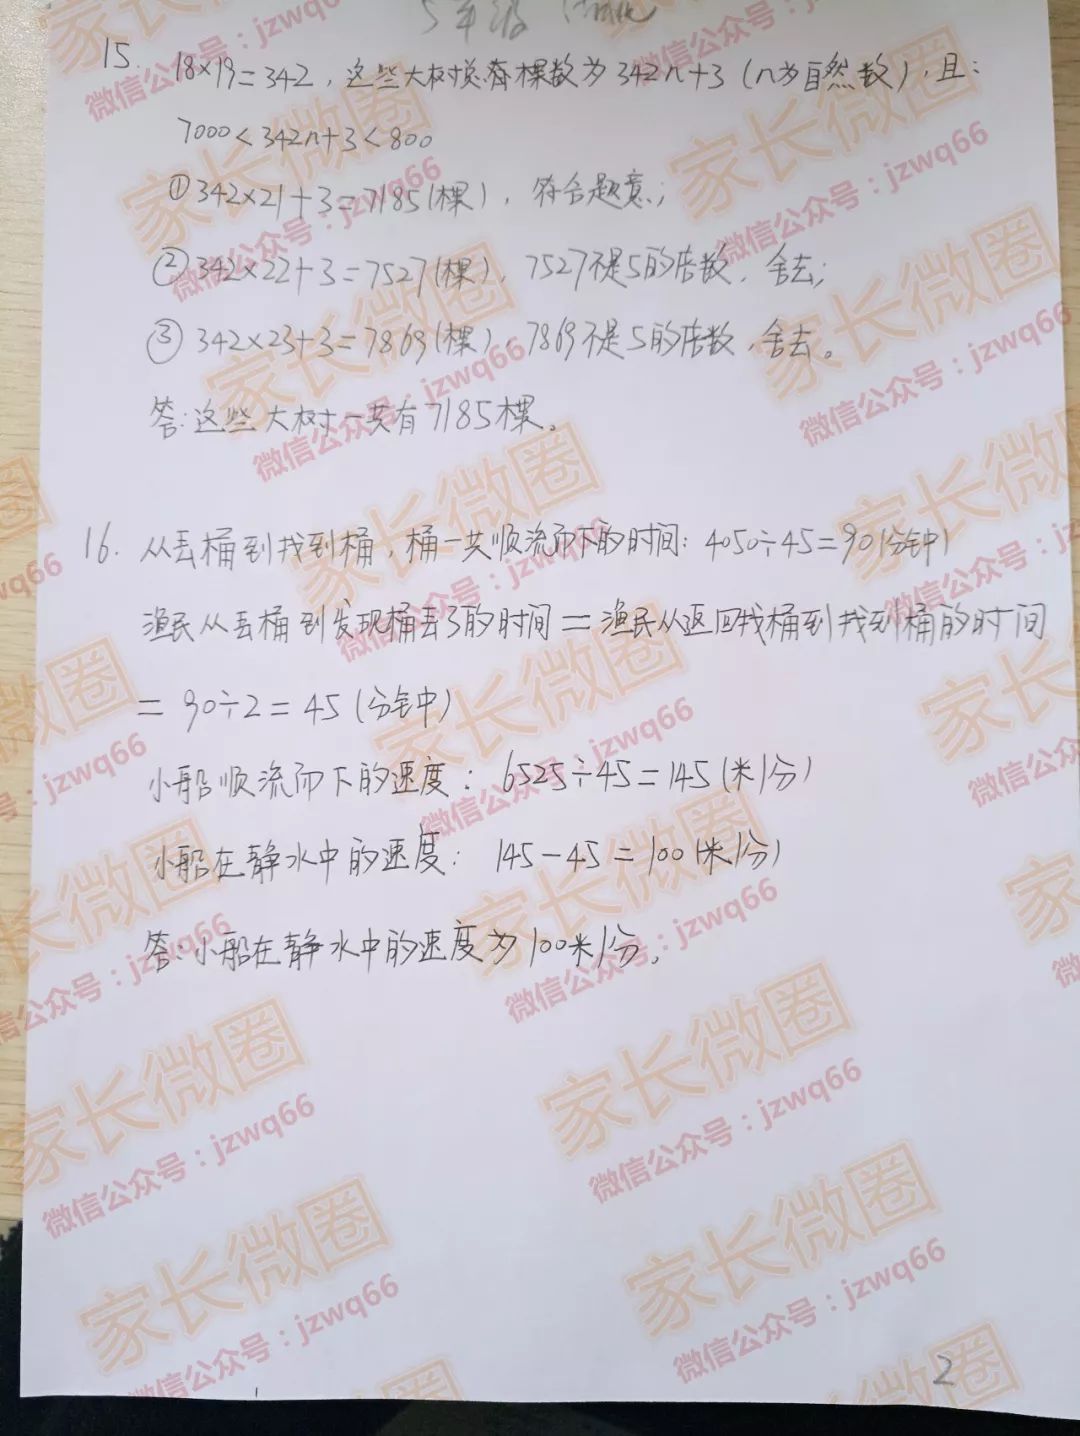 5年级
15. 18×19=342，这些大树总有棵数为342n+3（n为自然数），且：
7000<342n+3<800
①342×21+3=7185（棵），符合题意；
②342×22+3=7527（棵），7527不是5的倍数，舍去；
③342×23+3=7869（棵），7869不是5的倍数，舍去。
答：这些大树一共有7185棵。
16. 从丢桶到找到桶，桶一共顺流而下的时间：4050÷45=90（分钟）
渔民从丢桶到发现桶丢了的时间=渔民从返回找桶到找到桶的时间
=90÷2=45（分钟）
小船顺流而下的速度：6525÷45=145（米/分）
小船在静水中的速度：145-45=100（米/分）
答：小船在静水中的速度为100米/分。
2
家长微圈
微信公众号：jzwq66